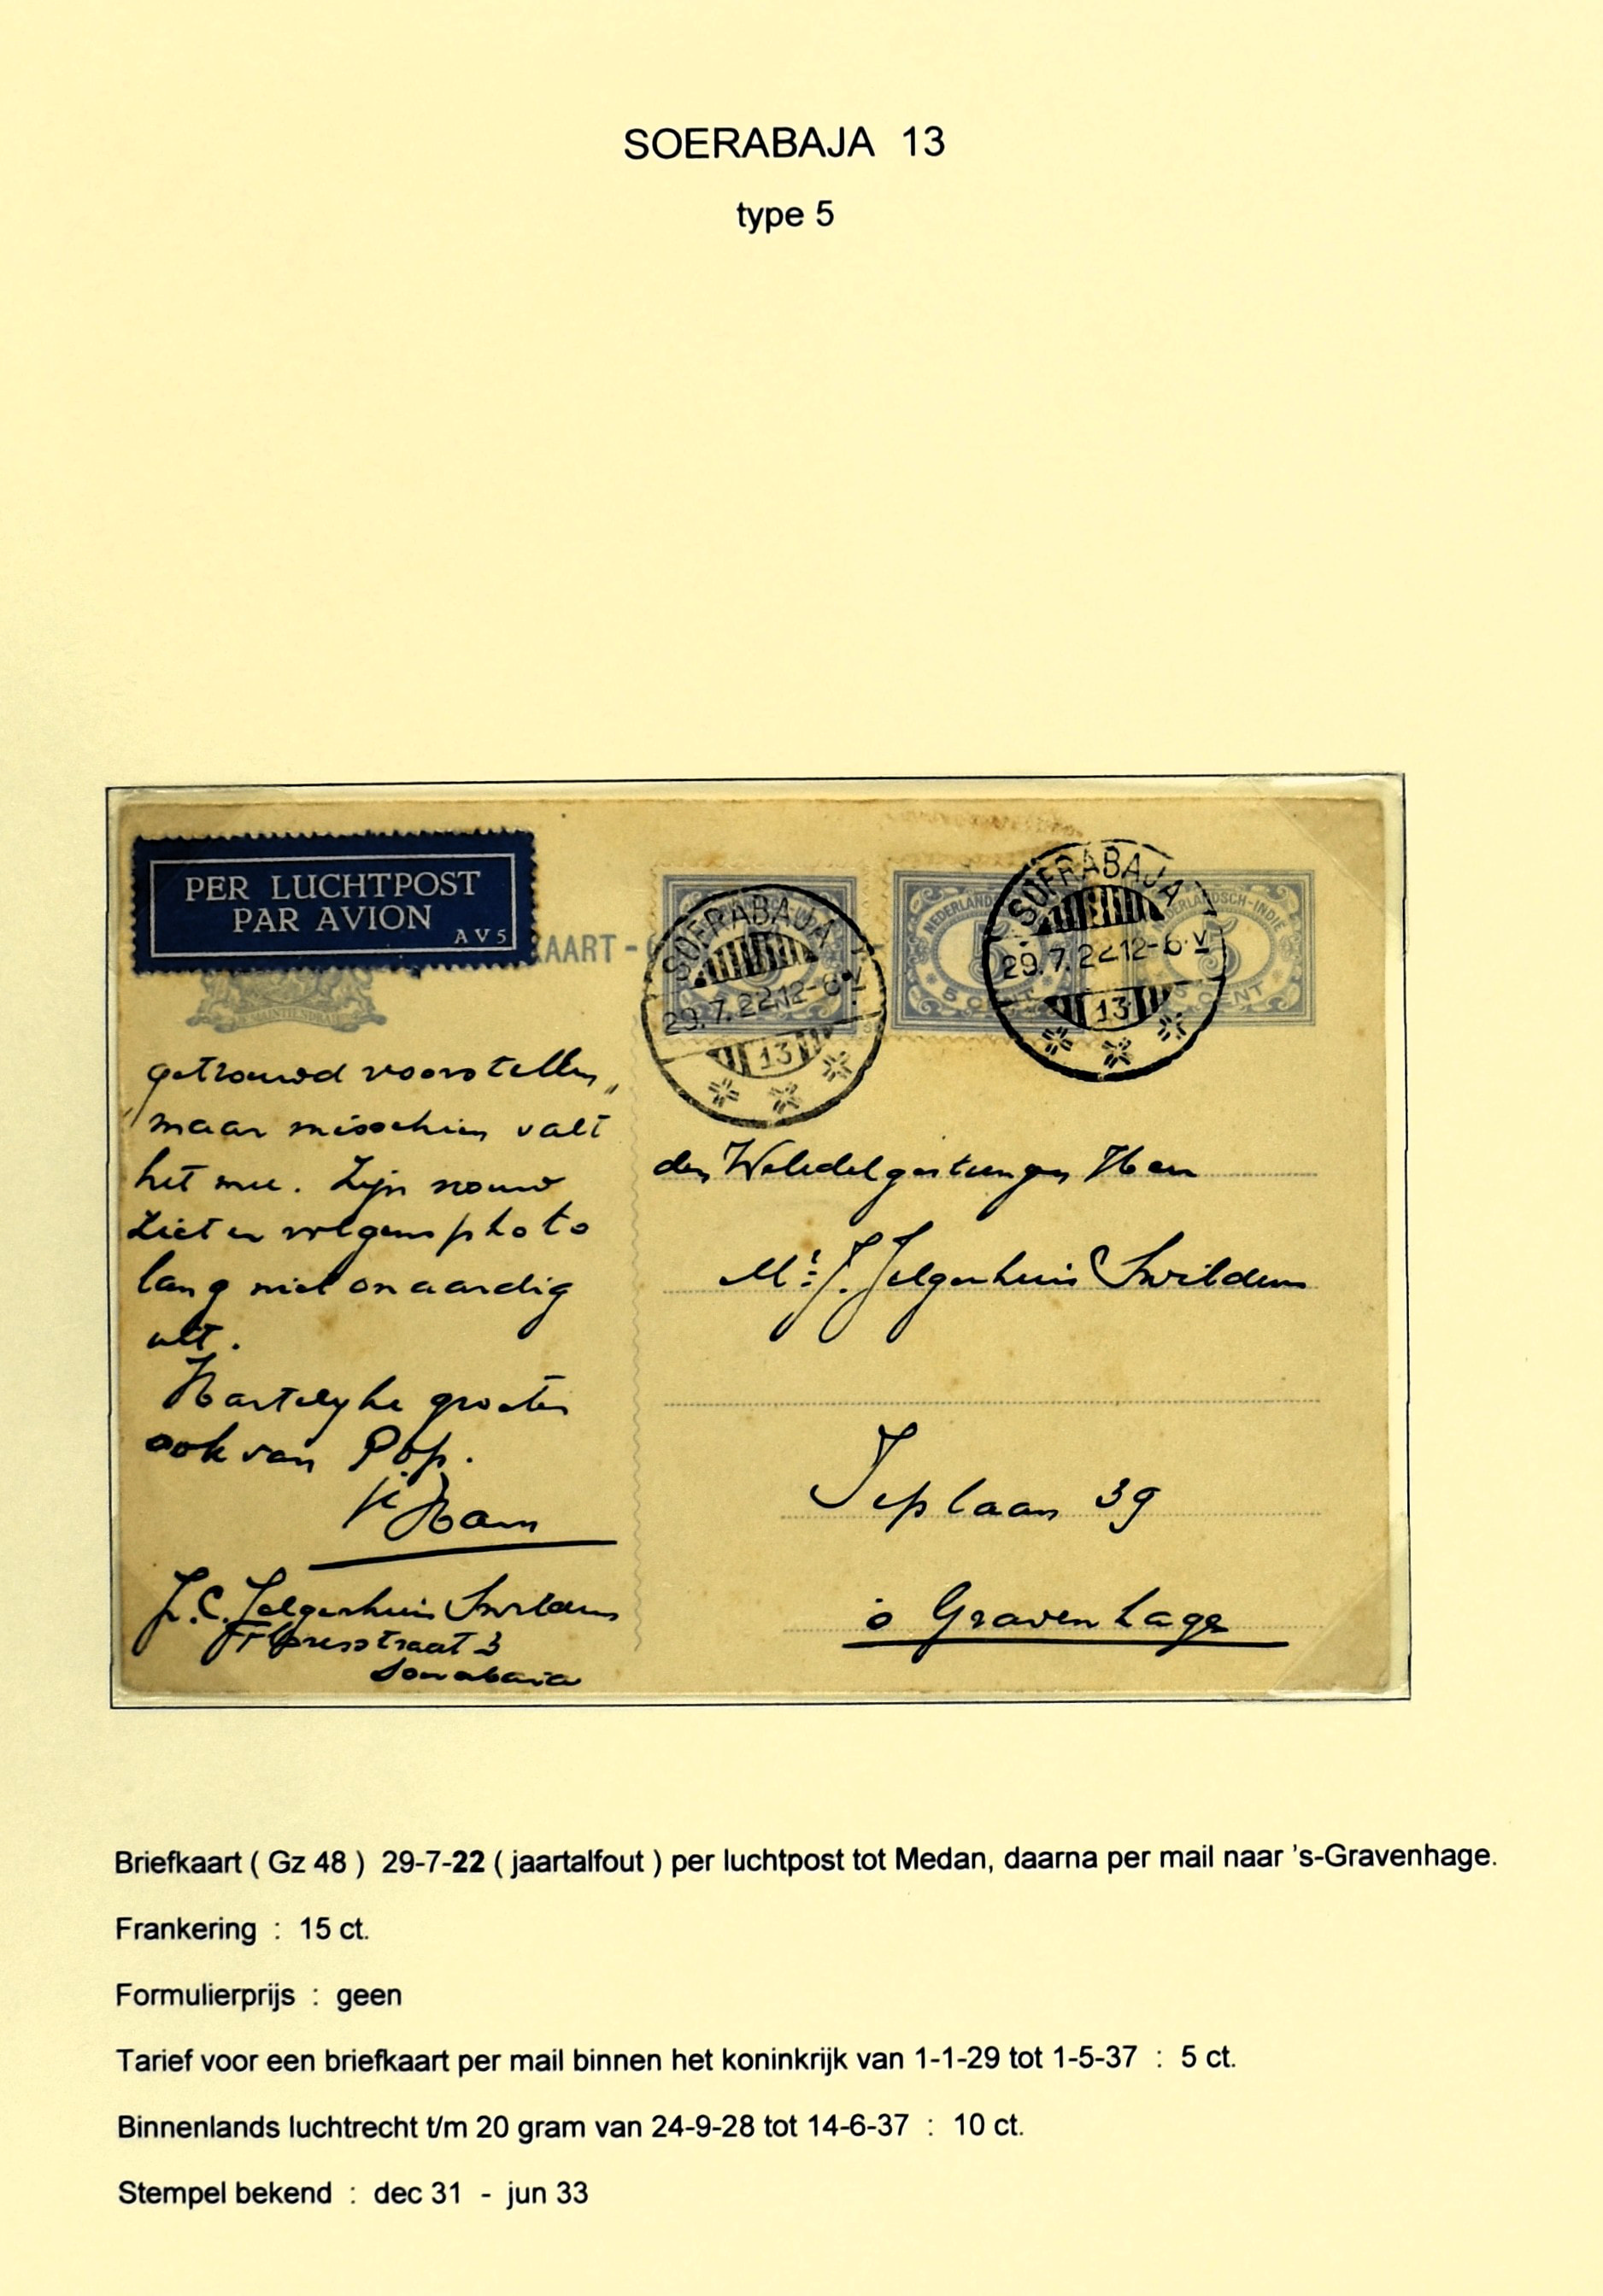 SOERABAJA 13
type 5
PER LUCHTPOST
PAR AVION
AV5
KAART -
JE MAINTIENDRAI
SOERABAJA
29.7.22.12-6.V
13
NEDERLANDSCH-INDIE
5 CENT
5
SOERABAJA
29.7.22 12-6.V
13
getrouwd voorstellen,
maar misschien valt
het mee. Zijn vrouw
ziet er volgens photo
lang niet onaardig
uit.
Hartelyke groeten
ook van Pop.
Ham
J.C. Jelgerhuis Swildens
Floresstraat 3
Soerabaia
den Weledelgestrengen Heer
Mr. J. Jelgerhuis Swildens
Ieplaan 39
's Gravenhage
Briefkaart ( Gz 48 ) 29-7-22 ( jaartalfout ) per luchtpost tot Medan, daarna per mail naar 's-Gravenhage.
Frankering : 15 ct.
Formulierprijs : geen
Tarief voor een briefkaart per mail binnen het koninkrijk van 1-1-29 tot 1-5-37 : 5 ct.
Binnenlands luchtrecht t/m 20 gram van 24-9-28 tot 14-6-37 : 10 ct.
Stempel bekend : dec 31 - jun 33